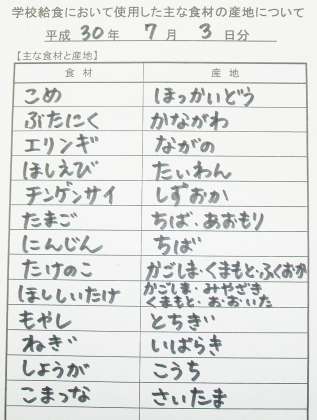 学校給食において使用した主な食材の産地について
平成 30 年 7 月 3 日分
【主な食材と産地】
食材 産地
こめ ほっかいどう
ぶたにく かながわ
エリンギ ながの
ほしえび たいわん
チンゲンサイ しずおか
たまご ちば・あおもり
にんじん ちば
たけのこ かごしま・くまもと・ふくおか
ほししいたけ かごしま・みやざき
くまもと・おおいた
もやし とちぎ
ねぎ いばらき
しょうが こうち
こまつな さいたま